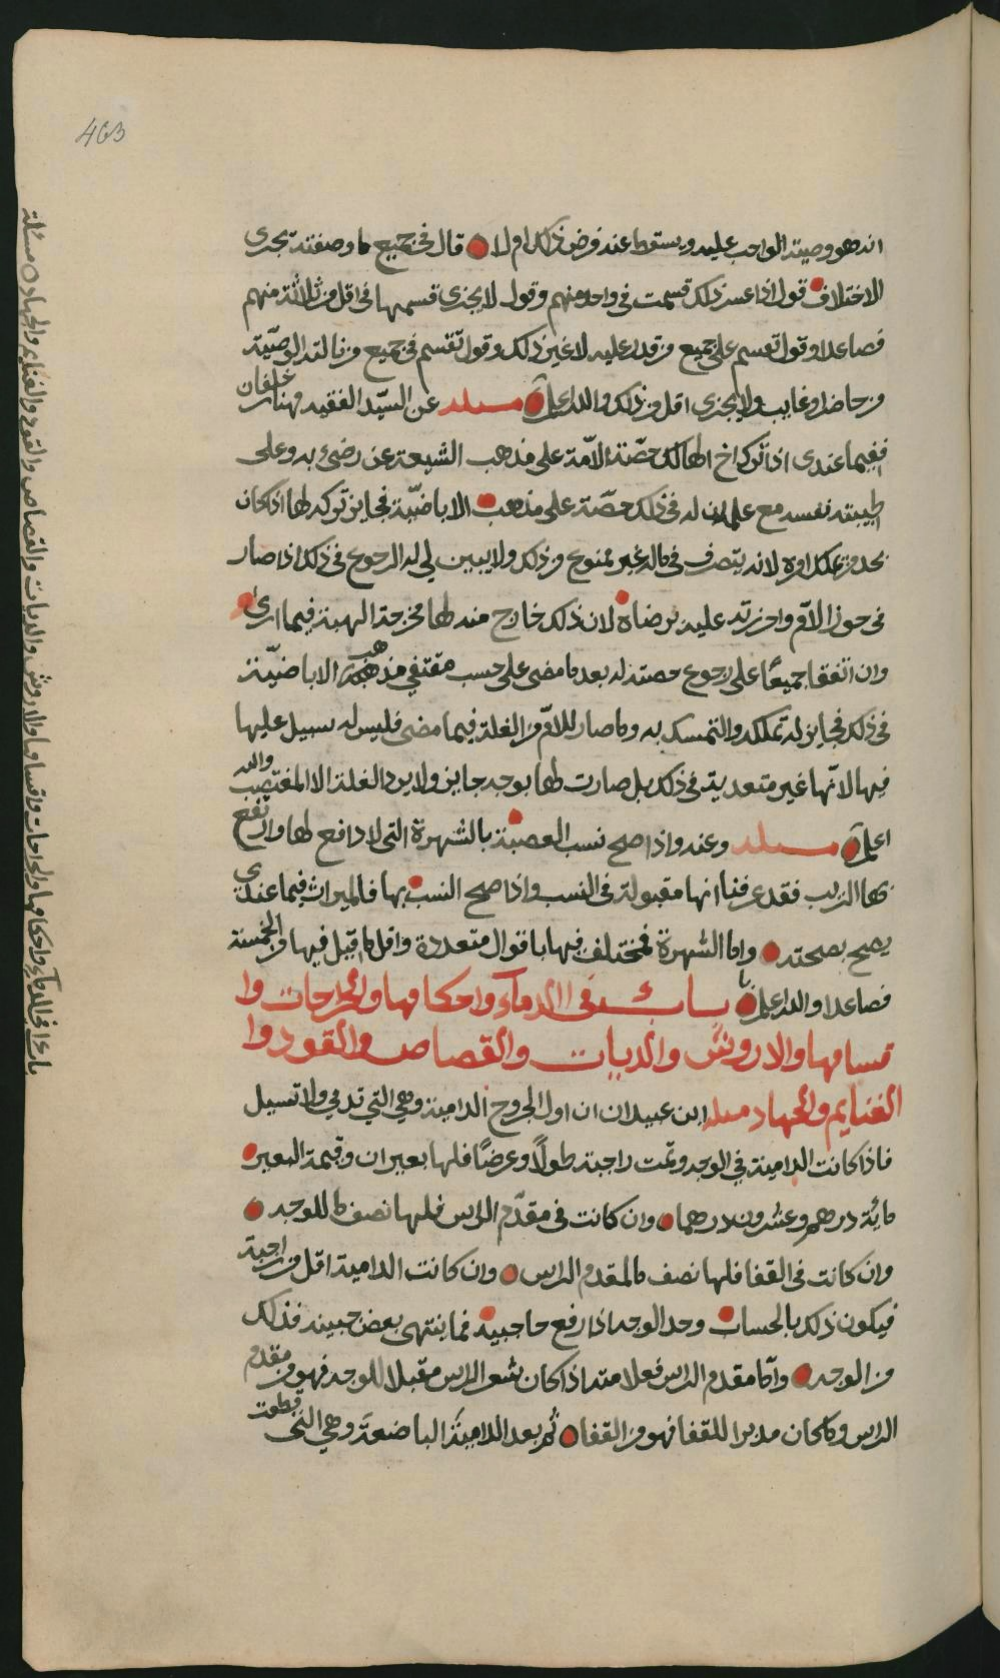 463
انه هو وصيته الواجب عليه ويسقط عنه فرض ذلك ام لا قال في جميع ما وصفته يجري
الاختلاف قول اذا عسر ذلك قسمت في واحد منهم وقول لا يجزي قسمها في اقل من الثلاثة منهم
فصاعدا وقول تقسم على جميع من قدر عليه لا غير ذلك وقول تقسم في جميع من نالته الوصيّة
من حاضر او غايب ولا يجزي اقل من ذلك والله اعلم مسئله عن السيّد الفقيه مهنا بن خلفان
ففيما عندي اذا ترك اخ الهالك حصّته الامّة على مذهب الشيعة عن رضى به وعلى
طيبته نفسه مع علمه ان له في ذلك حصّة على مذهب الاباضيّة فجايز تركه لها اذا كان
بحد من يملك امره لانه يتصرف في ماله غير ممنوع من ذلك ولا يبين لي له الرجوع في ذلك اذا صار
في حوز الامّ واحرزته عليه برضاه لان ذلك خارج منه لها مخرجة الهبة فيما ارى
وان اتفقا جميعًا على رجوع حصته له بعد ما مضى على حسب مقتفي مذهب الاباضيّة
في ذلك فجايز له تملكه والتمسك به وما صار للامّ من الغلة فيما مضى فليس له سبيل عليها
فيها لانّها غير متعدية في ذلك بل صارت لها بوجه جايز ولا يرد الغلة الا المغتصب والله
اعلم مسئله وعنه واذا صح نسب العصبة بالشهرة التي لا دافع لها وارتفع
بها الريب فقد عرفنا انها مقبولة في النسب واذا صح النسب بها فالميراث فيما عندي
يصح بصحته واما الشهرة فمختلف فيها باقوال متعددة واقل ما قيل فيها من الخمسة
فصاعدا والله اعلم باب في الدماء واحكامها والجراحات وا
قسامها والاروش والديات والقصاص والقود وا
لغنايم والجهاد مسئله ابن عبيدان ان اول الجروح الدامية وهي التي تدمي ولا تسيل
فاذا كانت الدامية في الوجه وتمت راجبة طولًا وعرضًا فلها بعيران وقيمة البعير
مائة درهم وعشرون درهما وان كانت في مقدّم الراس فلها نصف ما للوجه
وان كانت في القفا فلها نصف ما لمقدم الراس وان كانت الدامية اقل من راجبة
فيكون ذلك بالحساب وحد الوجه اذا رفع حاجبيه فما ينتهى بعض جبينه فذلك
من الوجه وامّا مقدم الراس فعلامته اذا كان شعر الراس مقبلا للوجه فهو من مقدم
الراس وما كان مدبرا للقفا فهو من القفا ثم بعد الدامية الباضعة وهي التي قطعت
باب في الدماء واحكامها والجراحات واقسامها والاروش والديات والقصاص والقود والغنايم والجهاد مسئلة